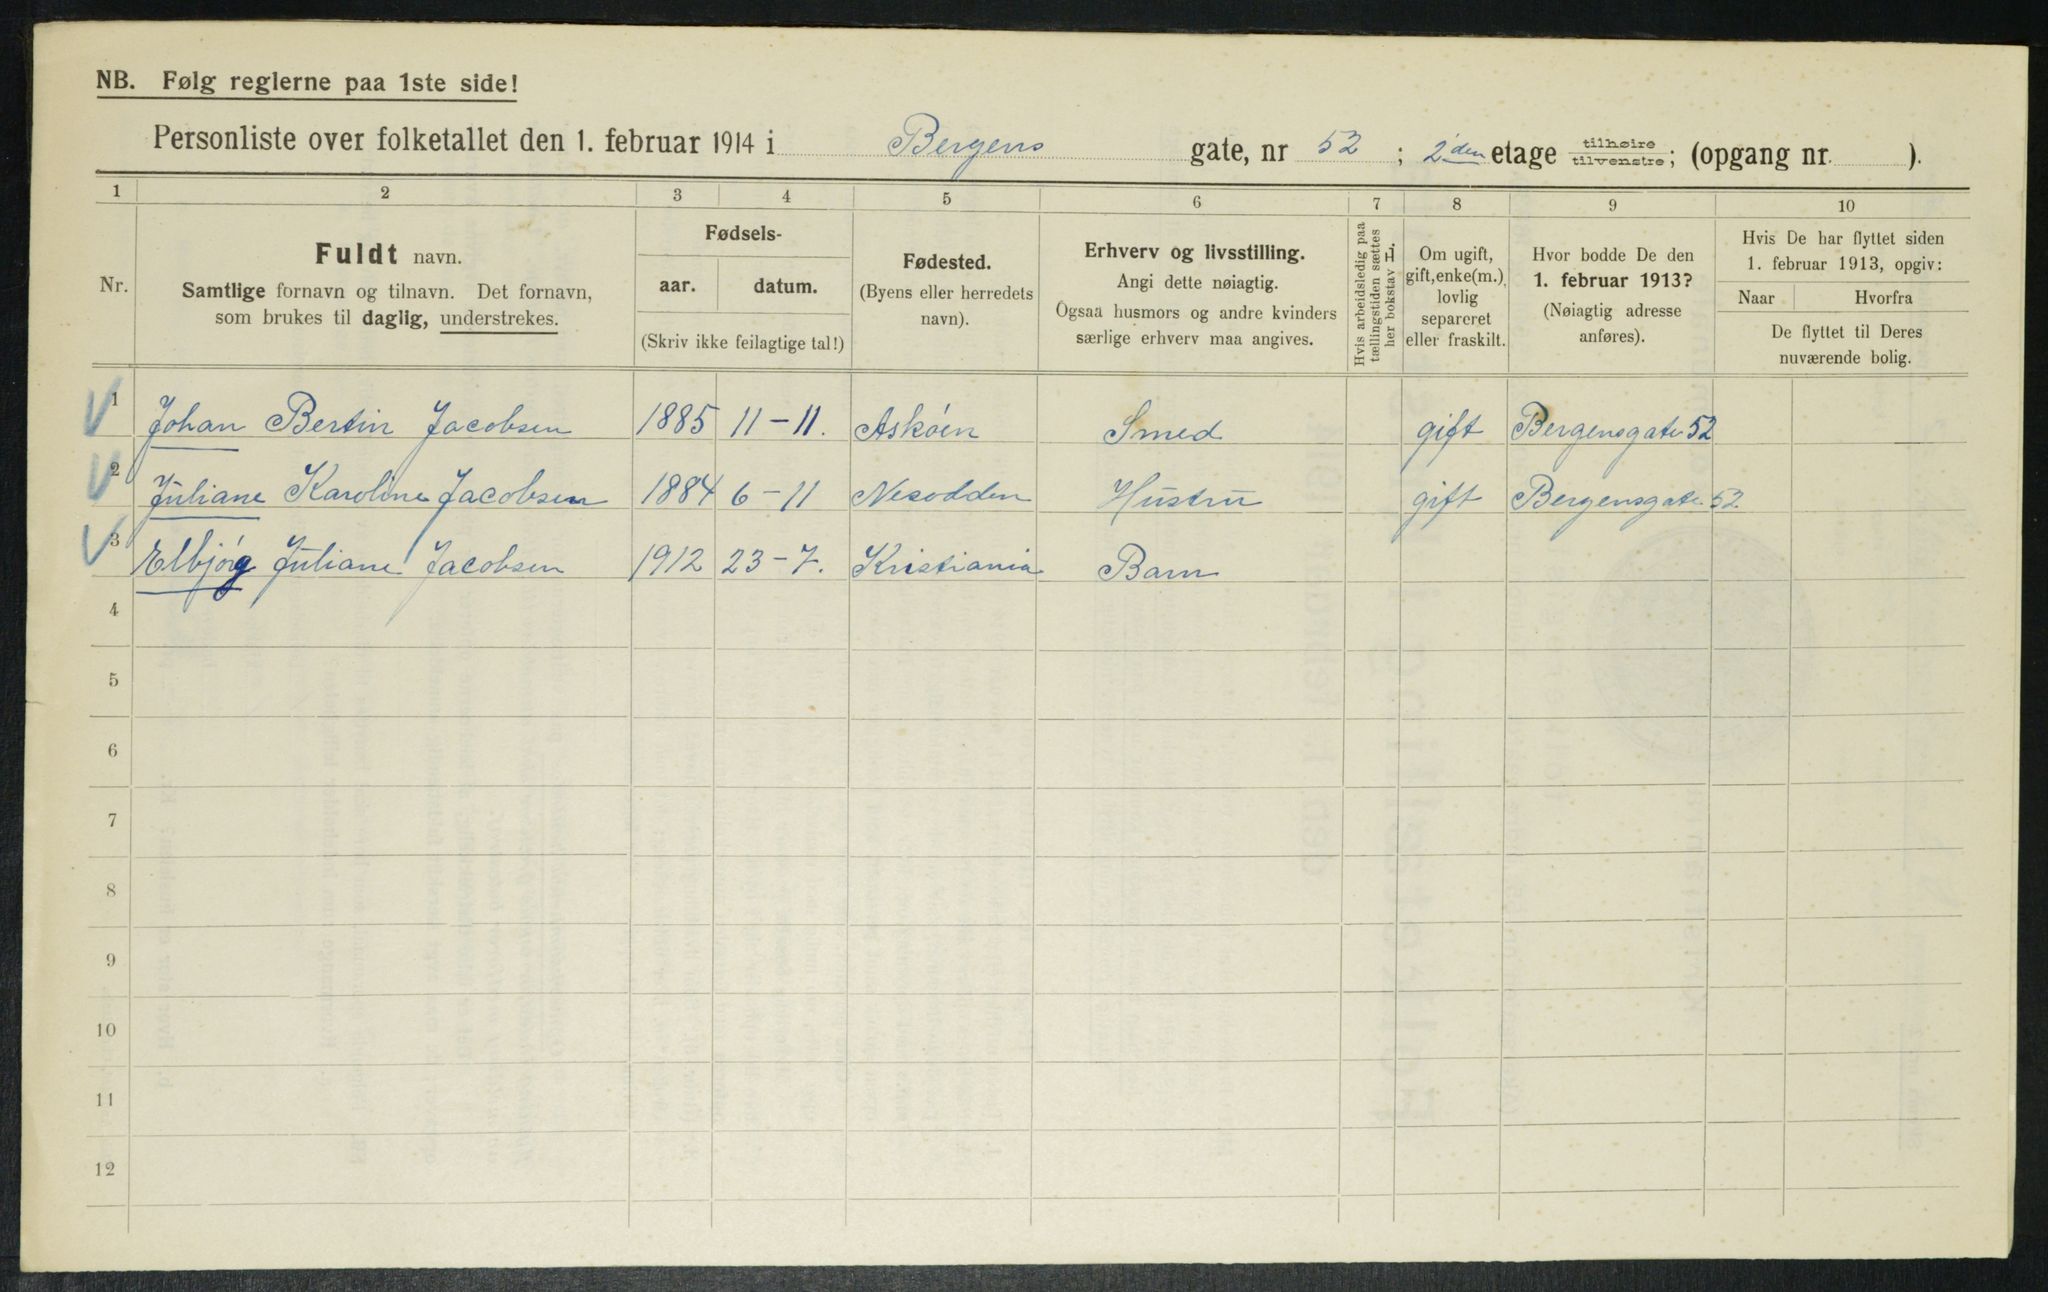 NB. Følg reglerne paa 1ste side!
Personliste over folketallet den 1. februar 1914 i Bergens gate, nr 52; 2den etage tilhøire tilvenstre; (opgang nr. ).
1 2 3 4 5 6 7 8 9 10
Nr.
Fuldt navn.
Samtlige fornavn og tilnavn. Det fornavn,
som brukes til daglig, understrekes.
Fødsels-
aar. datum.
(Skriv ikke feilagtige tal!)
Fødested.
(Byens eller herredets
navn).
Erhverv og livsstilling.
Angi dette nøiagtig.
Ogsaa husmors og andre kvinders
særlige erhverv maa angives.
Hvis arbeidsledig paa
tællingstiden sættes
her bokstav L.
Om ugift,
gift, enke(m.),
lovlig
separeret
eller fraskilt.
Hvor bodde De den
1. februar 1913?
(Nøiagtig adresse
anføres).
Hvis De har flyttet siden
1. februar 1913, opgiv:
Naar Hvorfra
De flyttet til Deres
nuværende bolig.
1 Johan Bertin Jacobsen 1885 11-11. Askøen Smed gift Bergensgate 52
2 Juliane Karoline Jacobsen 1884 6-11 Nesodden Hustru gift Bergensgate. 52.
3 Elbjørg Juliane Jacobsen 1912 23-7. Kristiania Barn
4
5
6
7
8
9
10
11
12